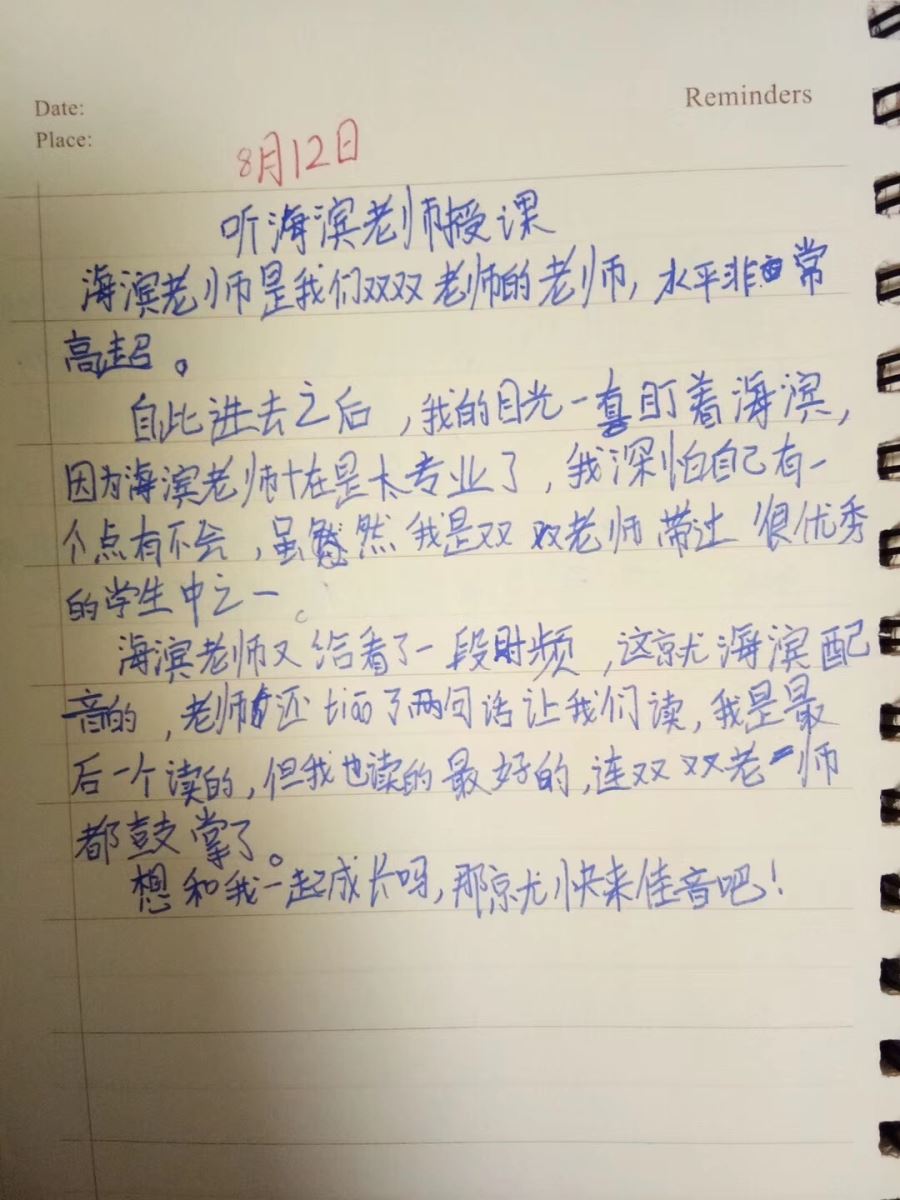 Reminders
Date:
Place:
8月12日
听海滨老师授课
海滨老师是我们双双老师的老师，水平非常
高超。
自此进去之后，我的目光一直盯着海滨，
因为海滨老师在是太专业了，我深怕自己有一
个点有不会，虽然我是双双老师带过很优秀
的学生中之一。
海滨老师又给看了一段时频，这就海滨配
音的，老师还tiao了两句话让我们读，我是最
后一个读的，但我也读的最好的，连双双老师
都鼓掌了。
想和我一起成长吗，那就快来佳音吧！